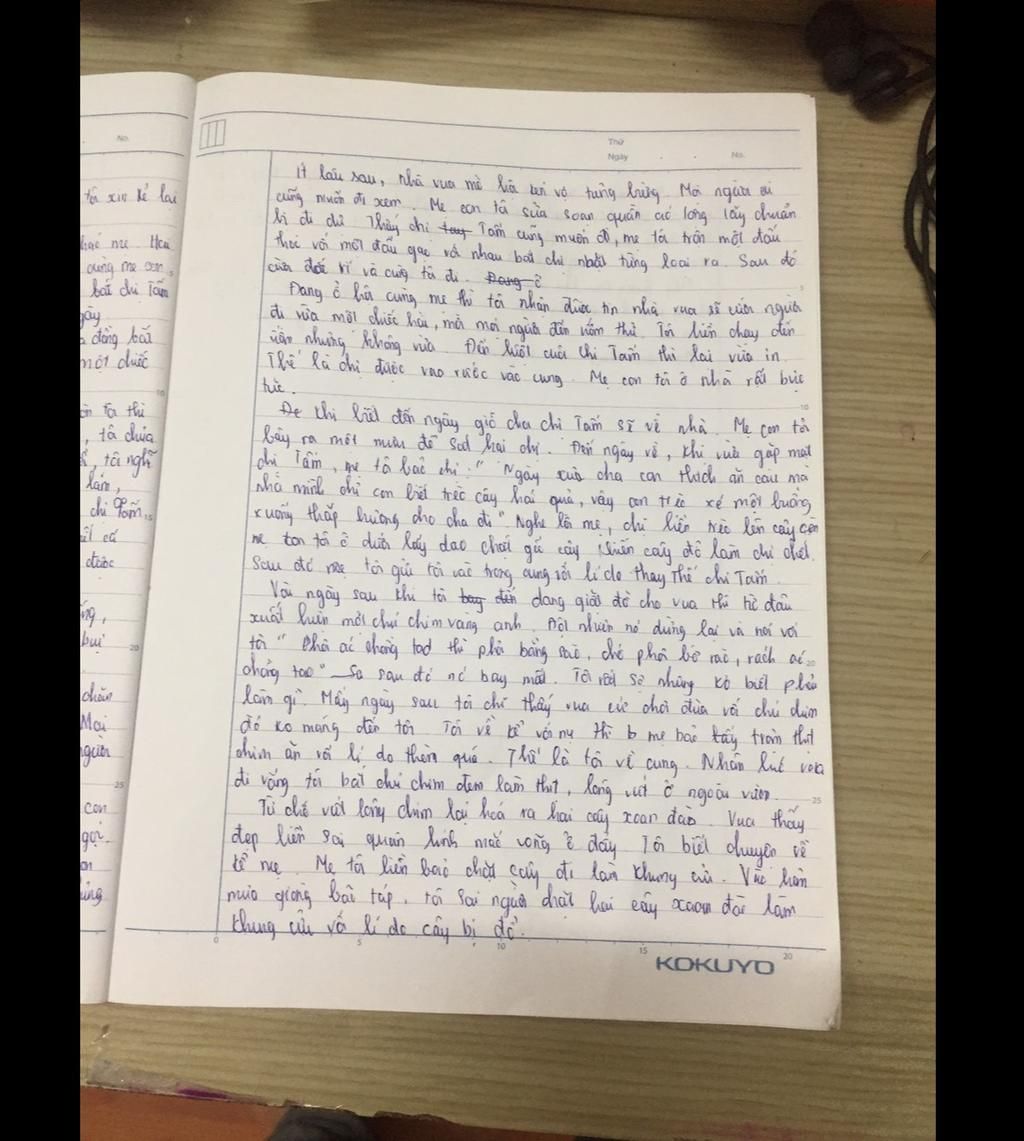 No.
tôi xin kể lại
cùng mẹ con
bắt chị Tấm
đằng bắt
một chiếc
10
, tôi chưa
, tôi nghĩ
lắm,
chị Tấm. 15
được
bụi
20
Mọi
người
25
con
gọi.
Thứ
Ngày . . No.
Ít lâu sau, nhà vua mở hội tưng bừng. Mọi người ai
cũng muốn đi xem. Mẹ con tôi sửa soạn quần áo lộng lẫy chuẩn
bị đi dự. Thấy chị Tấm cũng muốn đi, mẹ tôi trộn một đấu
thóc với một đấu gạo với nhau bắt chị nhặt từng loại ra. Sau đó
và cùng tôi đi. Đang ở
5
Đang ở hội cùng mẹ thì tôi nhận được tin nhà vua sẽ cưới người
đi vừa một chiếc hài, mà mọi người đến ướm thử. Tôi liền chạy đến
nhưng không vừa. Đến lượt cuối chị Tấm thì lại vừa in.
Thế là chị được vào rước vào cung. Mẹ con tôi ở nhà rất bực
tức.
10
khi biết đến ngày giỗ cha chị Tấm sẽ về nhà. Mẹ con tôi
bày ra một mưu để hại chị. Đến ngày về, khi vừa gặp mặt
chị Tấm, mẹ tôi bảo chị: "Ngày xưa cha con thích ăn cau mà
nhà mình chỉ con biết trèo cây hái quả, vậy con trèo xé một buồng
xuống thắp hương cho cha đi" Nghe lời mẹ, chị liền trèo lên cây còn
mẹ con tôi ở dưới lấy dao chặt gốc cây khiến cây đổ làm chị chết.
Sau đó mẹ tôi gửi tôi vào trong cung với lí do thay thế chị Tấm.
Vài ngày sau khi tôi đang giặt đồ cho vua thì từ đâu
xuất hiện một chú chim vàng anh. Đột nhiên nó dừng lại và nói với
tôi "Phơi áo chồng tao thì phơi bằng sào, chớ phơi bờ rào, rách áo
20
chồng tao" sau đó nó bay mất. Tôi rất sợ nhưng ko biết phải
làm gì. Mấy ngày sau tôi chỉ thấy vua cứ chơi đùa với chú chim
đó ko màng đến tôi. Tôi về kể với mẹ thì mẹ bảo thịt
chim ăn với lí do thèm quá. Thế là tôi về cung. Nhân lúc vua
đi vắng tôi bắt chú chim đem làm thịt, lông vứt ở ngoài vườn.
25
Từ chỗ vứt lông chim lại hoá ra hai cây xoan đào. Vua thấy
đẹp liền sai quân lính mắc võng ở đấy. Tôi biết chuyện về
kể mẹ. Mẹ tôi liền bảo chặt cây đi làm khung cửi. Vào hôm
mưa giông bão táp, tôi sai người chặt hai cây xoan đào làm
khung cửi với lí do cây bị đổ.
0 5 10 15 20
KOKUYO